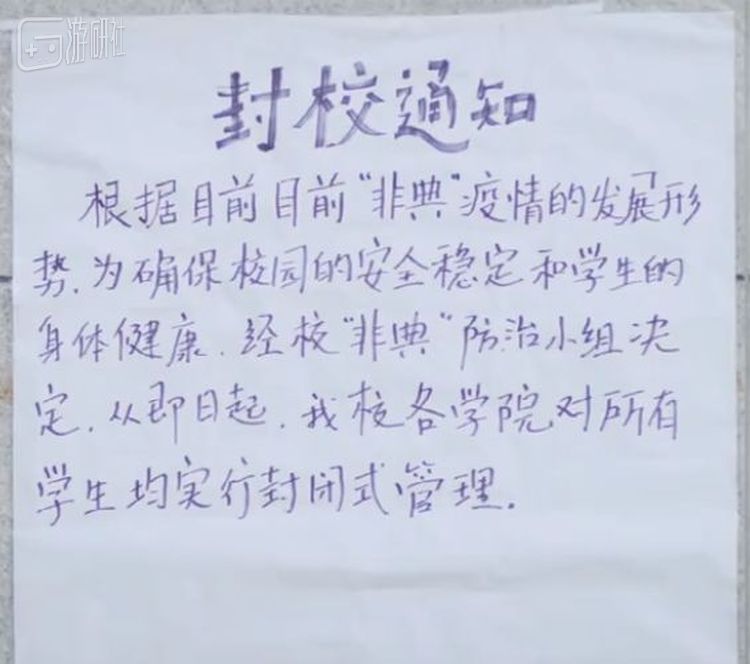 游研社
封校通知
根据目前目前“非典”疫情的发展形
势，为确保校园的安全稳定和学生的
身体健康，经校“非典”防治小组决
定，从即日起，我校各学院对所有
学生均实行封闭式管理．